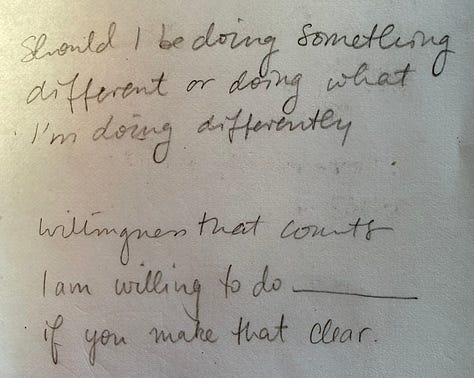 Should I be doing something
different or doing what
I'm doing differently
Willingness that counts
I am willing to do ________
if you make that clear.